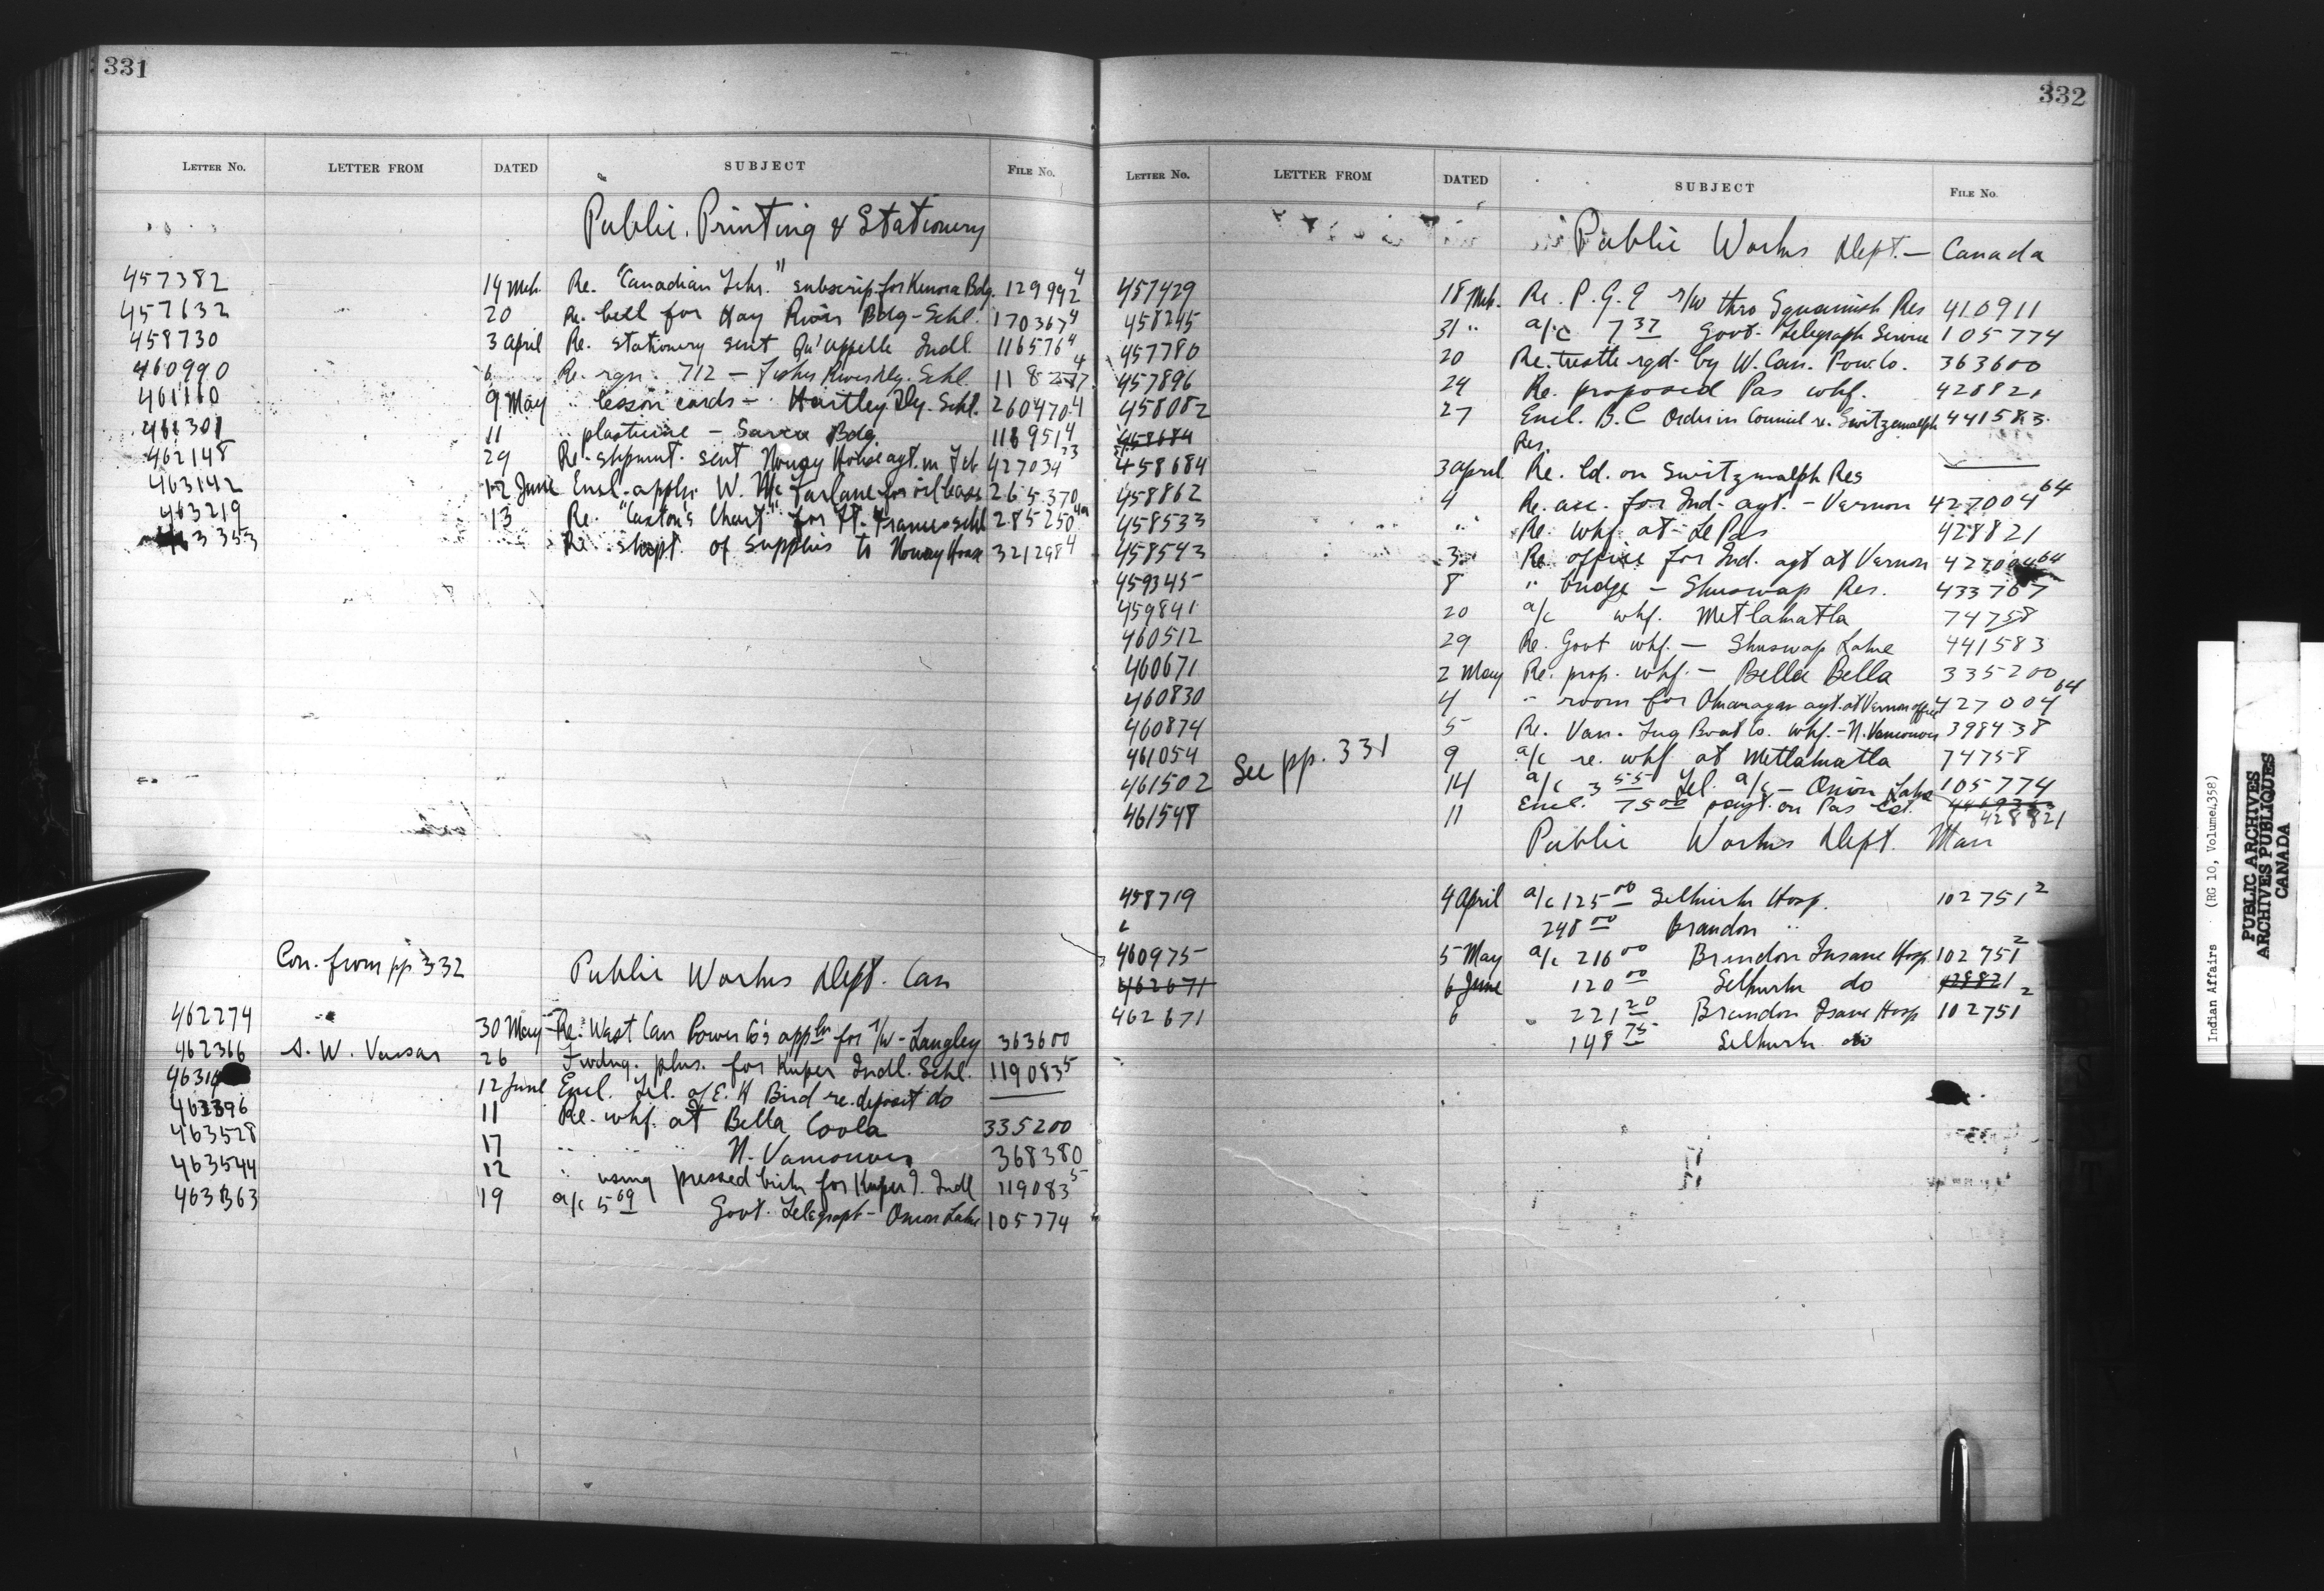 331
LETTER NO. LETTER FROM DATED SUBJECT FILE NO.
Public Printing & Stationery
457382 14 Mch. Re. "Canadian Tchr." subscrip. for Kenora Bdg. 129992 4
457632 20 Re. bell for Hay River Bdg-Schl. 170367 4
458730 3 April Re. stationery sent Qu'appelle Indl. 116576 4
460990 6 Re. rqn. 712 - Fisher River Dy. Schl. 118277 4
461160 9 May " lesson cards - Hartley Dy. Schl. 260470-4
461301 11 " plasticine - Sarcee Bdg. 118951 4
462148 29 Re. shpmnt. sent Norway House agt. in Feb 427034 23
463142 12 June Encl. appln. W. McFarlane for oil lease 265370
463219 13 Re. "Caxton's Chart" for Ft. Frances Schl 285250
463353 Re shept. of supplies to Norway House 321298 4
Con. from pp 332
Public Works Dept. Can
462274 30 May Re. West Can Power Co's appln for r/w - Langley 363600
462366 26 Fwdng. plns. for Kuper Indl. Schl. 119083 5
46314 12 June Encl. Tel. of E. H Bird re. deposit do
463396 11 Re. whf. at Bella Coola 335200
463528 17 " " " N. Vancouver 368380
463544 12 " using pressed brick for Kuper I. Indl 119083 5
463863 19 a/c 5 69 Govt. Telegraph - Onion Lake 105774
332
LETTER NO. LETTER FROM DATED SUBJECT FILE NO.
Public Works Dept. - Canada
457429 18 Mch. Re. P.G.E r/w thro Squamish Res 410911
458245 31 " a/c 7 37 Govt. Telegraph Service 105774
457780 20 Re. trestle rqd. by W. Can. Pow. Co. 363600
457896 24 Re. proposed Pas whf. 428821
458082 27 Encl. B.C Order in Council re. Switzemalph 441583
458684 Res.
458684 3 April Re. ld. on Switzmalph Res
458862 4 Re. acc. for Ind. agt. - Vernon 427004 64
458533 " Re. whf. at Le Pas 428821
458543 3 Re office for Ind. agt at Vernon 427004 64
459345 8 " bridge - Shuswap Res. 433767
459841 20 a/c whf. Metlakatla 74758
460512 29 Re. Govt whf. - Shuswap Lake 441583
460671 2 May Re. prop. whf. - Bella Bella 335200
460830 4 " room for Okanagan agt. at Vernon office 427004 64
460874 5 Re. Van. Tug Boat Co. whf. - N. Vancouver 398438
461054 9 a/c re. whf at Metlakatla 74758
See pp. 331
461502 14 a/c 3 55 Tel. a/c - Onion Lake 105774
461548 11 Encl. 75 00 payt. on Pas 428821
Public Works Dept. Man
458719 4 April a/c 125 00 Selkirk Hosp. 102751 2
248 00 Brandon "
460975 5 May a/c 216 00 Brandon Insane Hosp. 102751 2
462671 6 June 120 00 Selkirk do 428821
462671 6 " 221 20 Brandon Isane Hosp 102751 2
148 75 Selkirk do
Indian Affairs (RG 10, Volume 4358)
PUBLIC ARCHIVES
ARCHIVES PUBLIQUES
CANADA